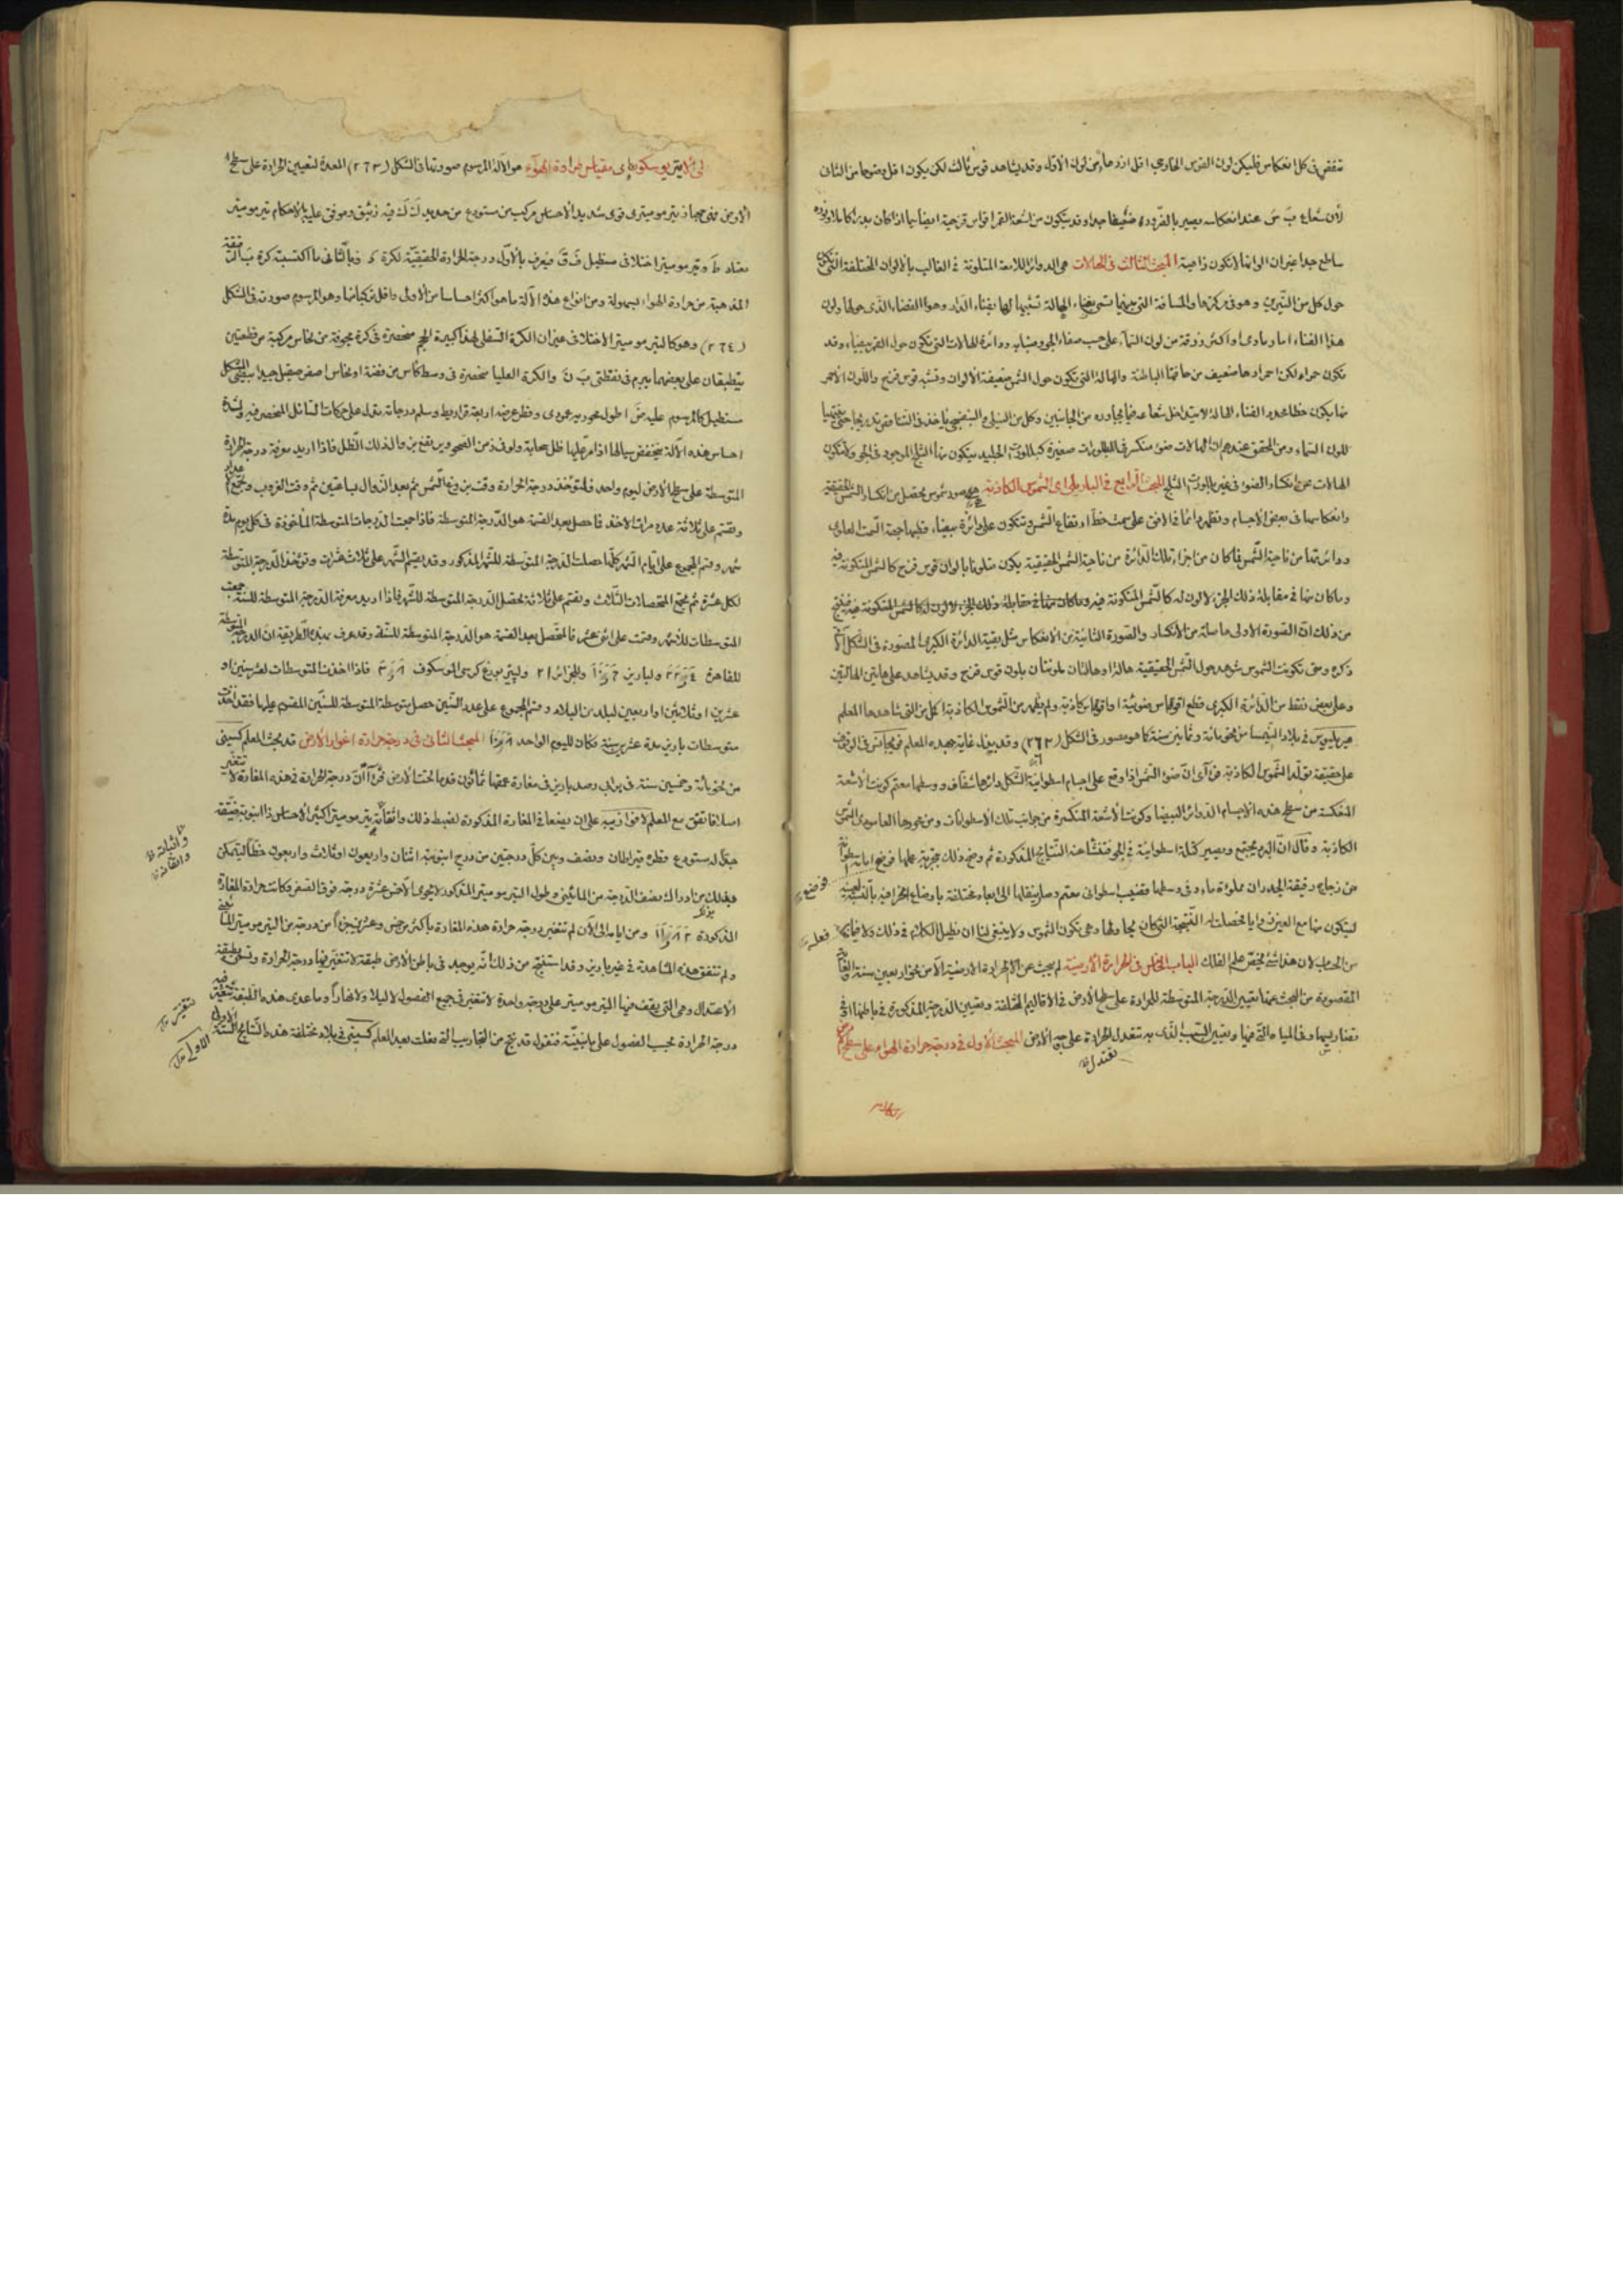 تنقص في كل انعكاس فليكن لون القوس الحاوي اقل ازدهاء من لون الاول وقد يشاهد قوس ثالث لكن يكون اقل وضوحا من الثاني
لأن شعاع بَ سَ عند انعكاسه يصير بالضرورة ضعيفا جدا وقد يتكون من اشعة القمر اقواس قزحية ايضا سيما اذا كان بدرا كاملا ونوره
ساطع جدا غير ان الوانها لا تكون زاهية المبحث الثالث في الهالات هي الدوائر اللامعة المتلونة في الغالب بالالوان المختلفة التي تتكون
حول كل من النيرين وهو في مركزها والمسافة التي بينهما تسمى بفناء الهالة تشبيها لها بفناء الدار وهو الفضاء الذي حولها ولون
هذا الفناء اما رمادي او اكثر زرقة من لون السماء على حسب صفاء الجو وضبابه ودائرة الهالات التي تكون حول القمر بيضاء وقد
تكون حمراء لكن احمرارها ضعيف من حافتها الباطنة والهالة التي تتكون حول الشمس ضعيفة الألوان وتشبه قوس قزح واللون الاحمر
منها يكون خطا محددا لفناء الهالة لا يتداخل شعاعه فيما يجاوره من الجانبين وكل من النيلي والبنفسجي يأخذ في التناقص تدريجا حتى ينتهيا
للون السماء ومن المحقق عندهم ان الهالات ضوء منكسر في بللورات صغيرة كبللورات الجليد يتكون منها الثلج الموجود في الجو ولا تتكون
الهالات من انكسار الضوء في غير بللورات الثلج المبحث الرابع في الباريلي اي الشموس الكاذبة هي صور شموس تحصل من انكسار الشمس الحقيقية
وانعكاسها في بعض الاجسام وتظهر دائما في الافق على سمت خط ارتفاع الشمس وتتكون على دائرة بيضاء قطبها جهة السمت العادي
ودائرتها من ناحية الشمس فما كان من اجزاء تلك الدائرة من ناحية الشمس الحقيقية يكون متلونا بالوان قوس قزح كالشمس المتكونة فيه
وما كان منها في مقابلة ذلك الجزء لا لون له كالشمس المتكونة فيه
من ذلك ان الصورة الاولى حاصلة من الانكسار والصورة الثانية من الانعكاس مثل بقية الدائرة الكبرى المصورة في الشكل
ذكره ومتى تكونت الشموس شوهد حول الشمس الحقيقية هالة او هالتان ملونتان بلون قوس قزح وقد يشاهد على هاتين الهالتين
وعلى بعض نقط من الدائرة الكبرى قطع اقواس ضوئية او اقواس كاذبة ولم يظهر من الشموس الكاذبة اكمل من التي شاهدها المعلم
في بلاد النيمسا من نحو مائة وثمانين سنة كما هو مصور في الشكل (٢٦٢) وقد بذل غاية جهده المعلم في الوقوف
على حقيقة تولد الشموس الكاذبة فرأى ان ضوء الشمس اذا وقع على اجسام اسطوانية الشكل دائرها شفاف ووسطها معتم كونت الاشعة
المنعكسة من سطح هذه الاجسام الدوائر البيضا وكونت الأشعة المنكسرة من جوانب تلك الأسطوانات ومن محورها العامودي الشمس
الكاذبة وقال ان البرد يجتمع ويصير كتلة اسطوانية في الجو فتنشأ عنه النتائج المذكورة ثم وضح ذلك بتجربة عملها فوضع
من زجاج رقيقة الجدران مملوءة ماء وفي وسطها قضيب اسطواني معتم وصار ينقلها الى ابعاد مختلفة باوضاع انحرافية
ليتكون منها مع العين زوايا فحصلت له النتيجة التي كان يحاولها وهي تكون الشموس ولا ينبغي لنا ان نطيل الكلام في ذلك ولا فيما
من الحساب لان هذا شئ يخص علم الفلك الباب الخامس في الحرارة الأرضية لم يبحث عن الحرارة الارضية الا من نحو اربعين سنة والغاية
المقصودة من البحث عنها تعيين الدرجة المتوسطة للحرارة على سطح الارض في الاقاليم المختلفة وتعيين الدرجة المذكورة في باطنها
تضاريسها وفي المياه التي فيها وتعيين السبب الذي به تتعدل الحرارة على الأرض المبحث الأول في درجة حرارة الهواء على سطح الارض
فوضع
فعله
تعتدل
الاتيريوسكوب اي مقياس حرارة الهواء هو الآلة المرسوم صورتها في الشكل (٢٦٣) المعدة لتعيين الحرارة على سطح
الارض فهي جهاز تيرموميتري قوي شديد الاحساس مركب من مستودع من حديد كَ كَ فيه زئبق وموفق عليه بالاحكام تيرموميتر
معتاد طَ وتيرموميتر اختلافي مستطيل فَ قَ فيعرف بالأول درجة الحرارة الحقيقية لكرة كَ وبالثاني ما اكتسبته كرة بَ
المذهبة من حرارة الهواء بسهولة ومن انواع هذه الآلة ما هو اكثر احساسا من الأولى واقل تركيبا منها وهو المرسوم صورته في الشكل
(٢٦٤) وهو كالتيرموميتر الاختلافي غير ان الكرة السفلى لهذا كبيرة الحجم منحصرة في كرة مجوفة من نحاس مركبة من قطعتين
ينطبقان على بعضهما ببرم في نقطتي بَ نَ والكرة العليا منحصرة في وسط كأس من فضة او نحاس اصفر صقيل جيدا بيضي الشكل
مستطيل كالمرسوم عليه ضَ اطول محوريه عمودي وقطر عرضه اربعة قراريط وسلم درجاته يدل على حركات السائل المنحصر فيه ولشدة
احساس هذه الآلة ينخفض سيالها اذا مر عليها ظل سحابة ولو في زمن الصحو ويرتفع بزوال ذلك الظل فاذا اريد معرفة درجة الحرارة
المتوسطة على سطح الارض ليوم واحد فلتؤخذ درجة الحرارة وقت بزوغ الشمس ثم بعد الزوال بساعتين ثم وقت الغروب وتجمع
وتقسم على ثلاثة عدد مرات الاخذ فما حصل بعد القسمة هو الدرجة المتوسطة فاذا جمعت الدرجات المتوسطة المأخوذة في كل يوم مدة
شهر وقسم المجموع على ايام الشهر كلها حصلت الدرجة المتوسطة للشهر المذكور وقد يقسم الشهر على ثلاث عشرات وتؤخذ الدرجة المتوسطة
لكل عشرة ثم تجمع المتحصلات الثلاث وتقسم على ثلاثة تحصل الدرجة المتوسطة للشهر فاذا اريد معرفة الدرجة المتوسطة للسنة جمعت
المتوسطات للأشهر وقسمت على اثني عشر فالمتحصل بعد القسمة هو الدرجة المتوسطة للسنة وقد عرف بهذه الطريقة ان الدرجة المتوسطة
للقاهرة ٢٢٫٤ ولباريز وللجزائر ٢١ ولبيتربورغ كرسي الموسكوف فاذا اخذت المتوسطات لعشر سنين او
عشرين او ثلاثين او اربعين لبلد من البلاد وقسم المجموع على عدد السنين حصل متوسطة المتوسطة للسنين المقسوم عليها فقد اخذت
متوسطات باريز مدة عشرين سنة فكان لليوم الواحد المبحث الثاني في درجة حرارة اغوار الأرض قد بحث المعلم كسيني
من نحو مائة وخمسين سنة في رصد باريز في مغارة عمقها ثمانون قدما تحت الأرض فرأى ان درجة الحرارة في هذه المغارة لا تتغير
اصلا فاتفق مع المعلم لافوازييه على ان يضعا في المغارة المذكورة لضبط ذلك واتقانه تيرموميتر كثير الأحساس ذا انبوبة ضيقة
جدا له مستودع قطره قيراطان ونصف وبين كل درجتين من درج انبوبته اثنان واربعون او ثلاث واربعون خطا ليتمكن
بذلك من ادراك نصف الدرجة من المائيني وطول التيرموميتر المذكور لا يحوي الا خمس عشرة درجة فوق الصفر فكانت حرارة المغارة
المذكورة ومن ايامه الى الآن لم تتغير درجة حرارة هذه المغارة باكثر من خمس وعشرين جزءا من درجة من التيرموميتر
ولم تتفق هذه المشاهدة في غير باريز وقد استنتج من ذلك انه يوجد في باطن الأرض طبقة لا تتغير فيها درجة الحرارة وتسمى بطبقة
الاعتدال وهي التي يقف فيها التيرموميتر على درجة واحدة لا تتغير في جميع الفصول لا ليلا ولا نهارا وما عدى هذه الطبقة تتغير فيه
درجة الحرارة بحسب الفصول على ما نبينه فنقول قد نتج من التجاريب التي فعلت بعد المعلم كسيني في بلاد مختلفة هذه النتائج الستة الأولى
تتغير
الاولى